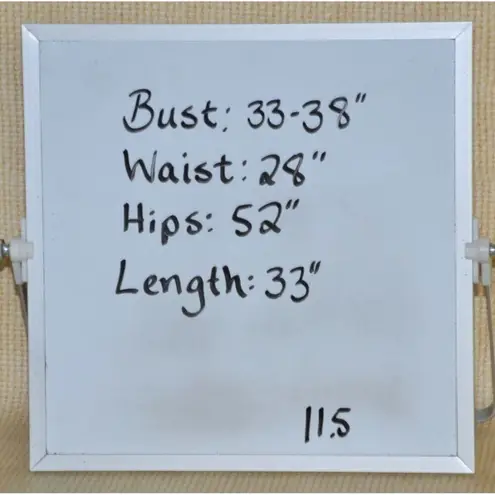 Bust: 33-38"
Waist: 28"
Hips: 52"
Length: 33"
11.5